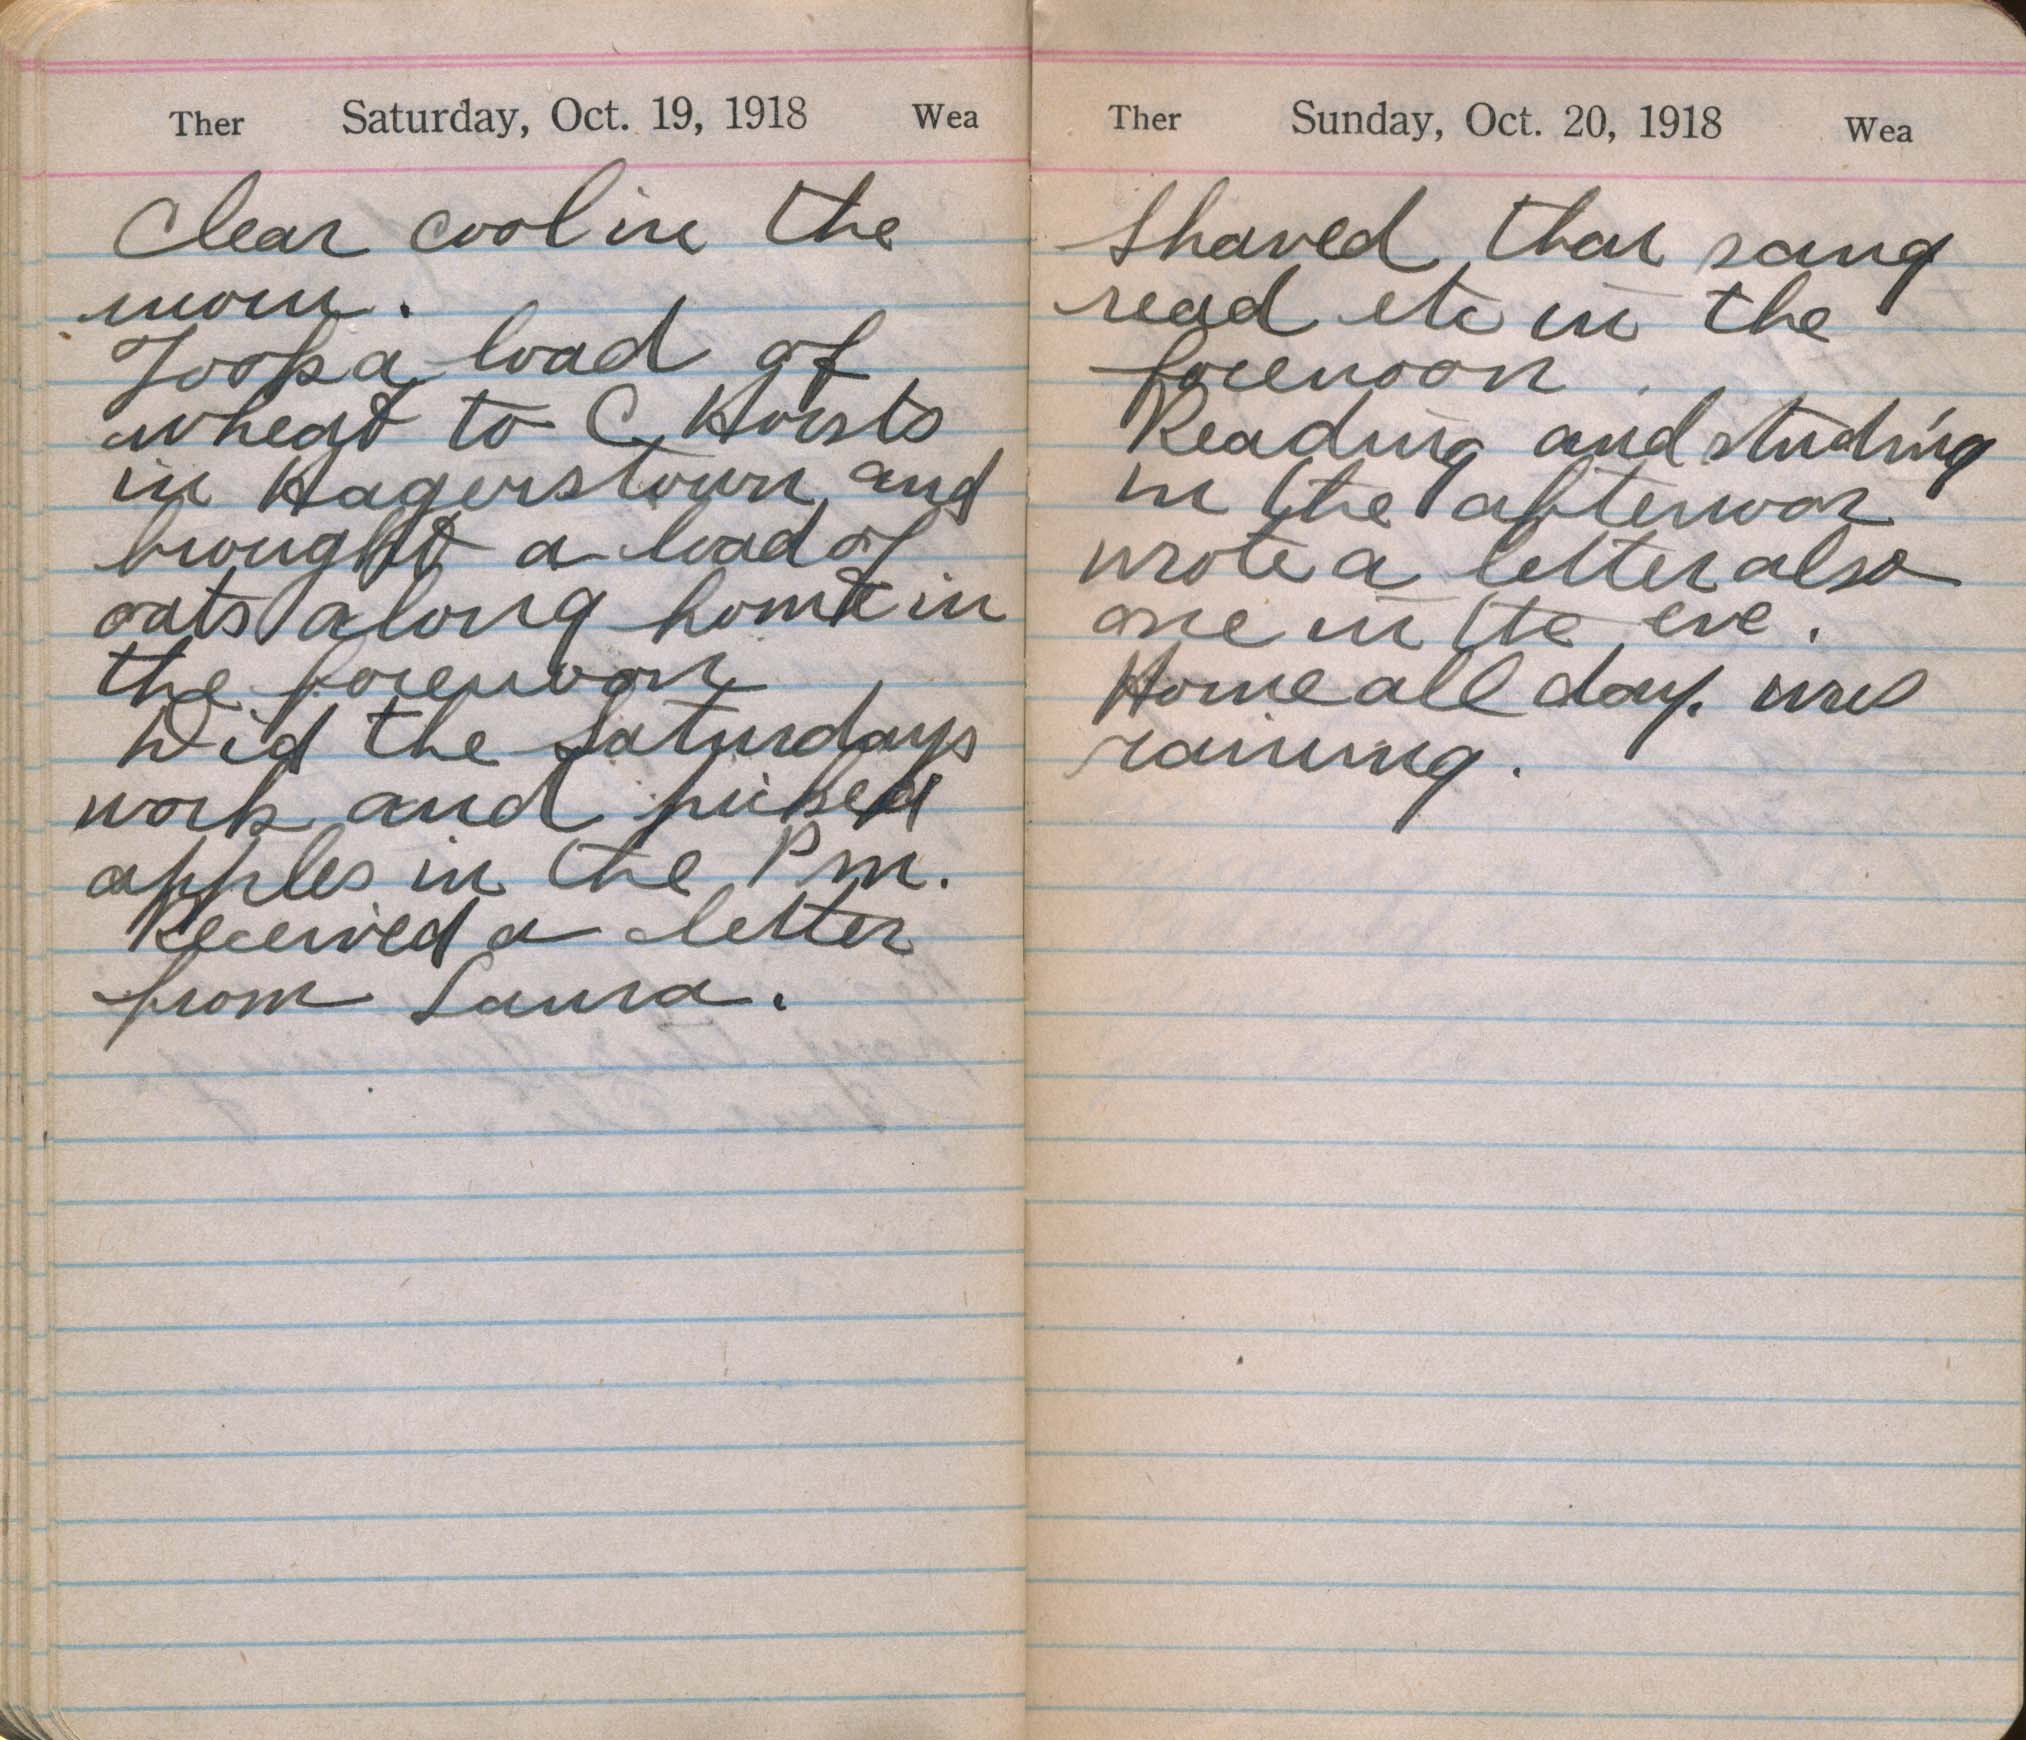 Ther Saturday, Oct. 19, 1918 Wea
Clear cool in the
morn.
Took a load of
wheat to C Horsts
in Hagerstown and
brought a load of
oats along home in
the forenoon
Did the Saturdays
work and picked
apples in the P m.
Received a letter
from Laura.
Ther Sunday, Oct. 20, 1918 Wea
Shaved than sang
read etc in the
forenoon.
Reading and studing
in the afternoon
wrote a letter also
one in the eve.
Home all day. was
raining.